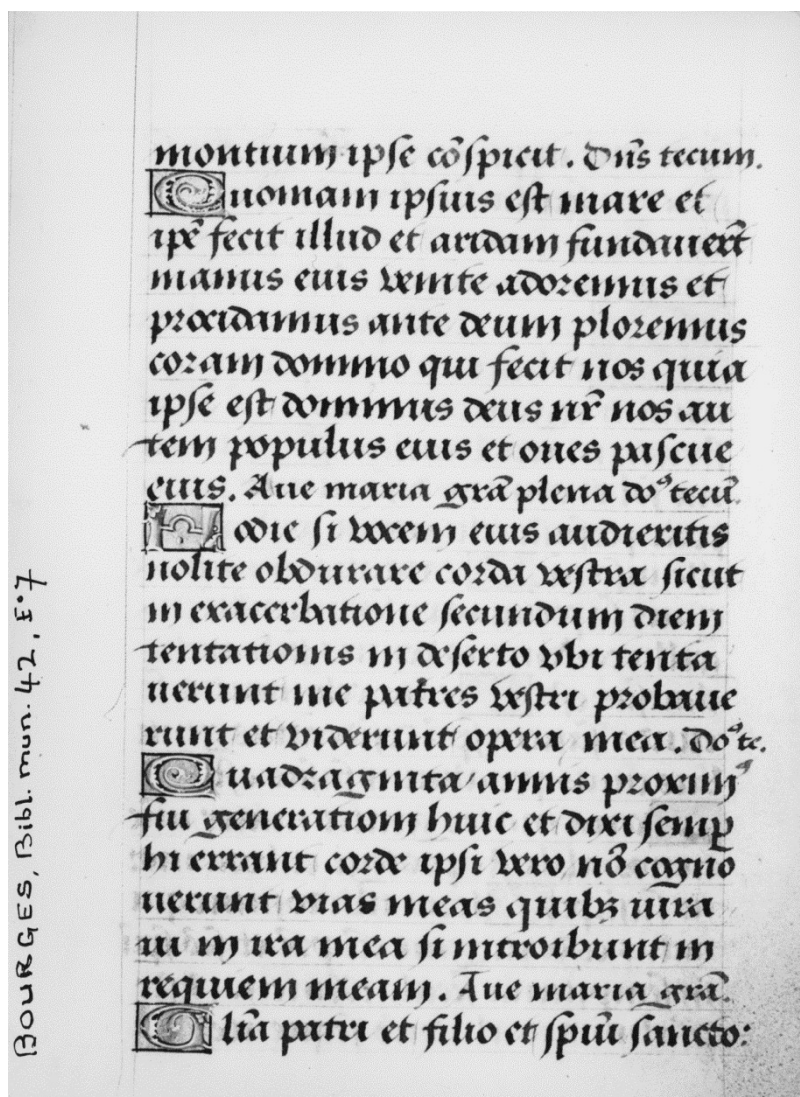 montium ipse cōspicit. Dn̄s tecum.
Quoniam ipsius est mare et
ip̄e fecit illud et aridam fundauer̄t
manus eius venite adoremus et
procidamus ante deum ploremus
coram domino qui fecit nos quia
ipse est dominus deus nr̄ nos au
tem populus eius et oues pascue
eius. Aue maria gr̄a plena doꝰ tecū.
Hodie si vocem eius audieritis
nolite obdurare corda vestra sicut
in exacerbatione secundum diem
tentationis in deserto vbi tenta
uerunt me patres vestri probaue
runt et viderunt opera mea. Doꝰ te.
Quadraginta annis proximꝰ
fui generationi huic et dixi semꝑ
hi errant corde ipsi vero nō cogno
uerunt vias meas quibꝫ iura
ui in ira mea si introibunt in
requiem meam. Aue maria gr̄a.
Gl̄ia patri et filio et spūi sancto:
BOURGES, Bibl. mun. 42, fº 7